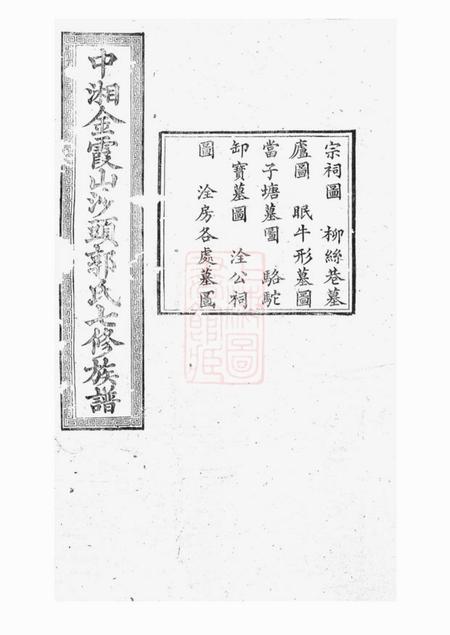 宗祠圖 柳絲巷墓
廬圖 眠牛形墓圖
當子塘墓圖 駱駝
卸寶墓圖 洤公祠
圖 洤房各處墓圖
中湘金霞山沙頭郭氏七修族譜